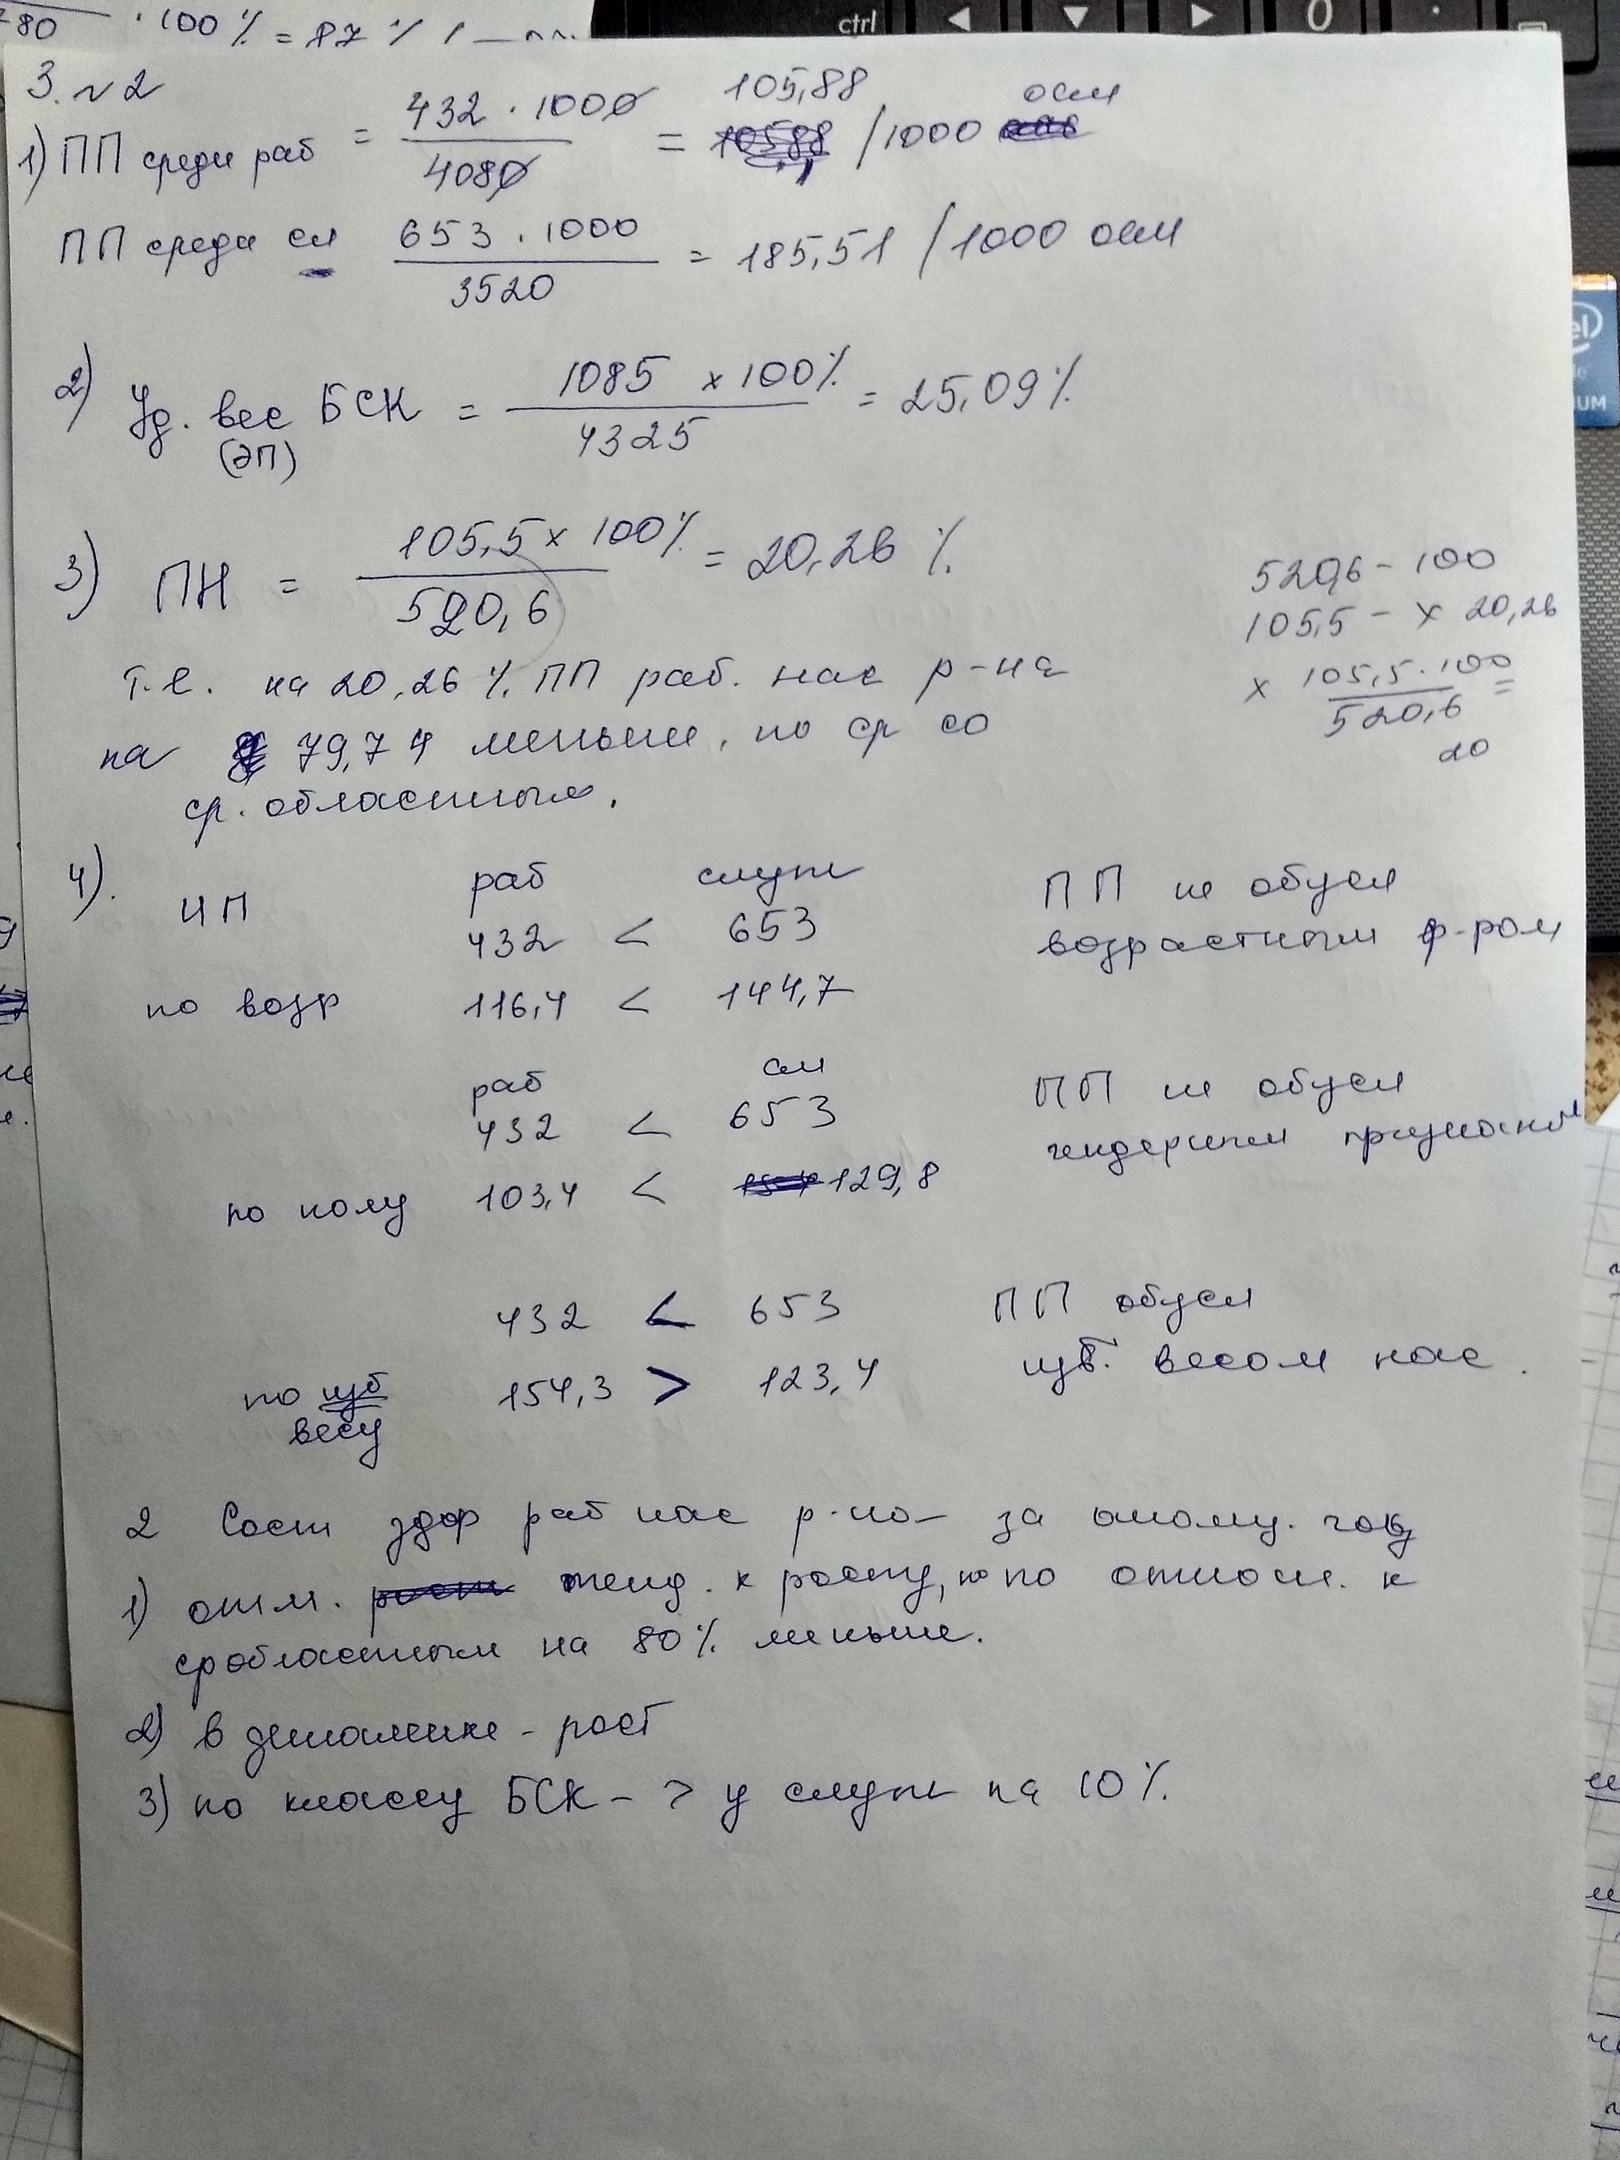 80 · 100 % = 87 %
ctrl 0
З. №2
105,88 осм
1) ПП среди раб = 432 · 1000 / 4080 = /1000
ПП среди сл 653 · 1000 / 3520 = 185,51 /1000 осм
2) Уд. вес БСК = 1085 x 100% / 4325 = 25,09 %
(ЭП)
3) ПН = 105,5 x 100% / 520,6 = 20,26 %
520,6 - 100
105,5 - x 20,26
x 105,5 · 100 / 520,6 =
20
т.е. на 20,26 % ПП раб. нас р-на
на 79,74 меньше, по ср со
ср. областным.
4). ИП раб служ ПП не обусл
432 < 653 возрастным ф-ром
по возр 116,4 < 144,7
раб сл ПП не обусл
432 < 653 гендерным признаком
по полу 103,4 < 129,8
432 < 653 ПП обусл
по уд весу 154,3 > 123,4 уд. весом нас.
2 Сост здор раб нас р-на за год
1) отм. тенд. к росту, но по относ. к
ср областным на 80% меньше.
2) в динамике - рост
3) по классу БСК - > у служ на 10%.